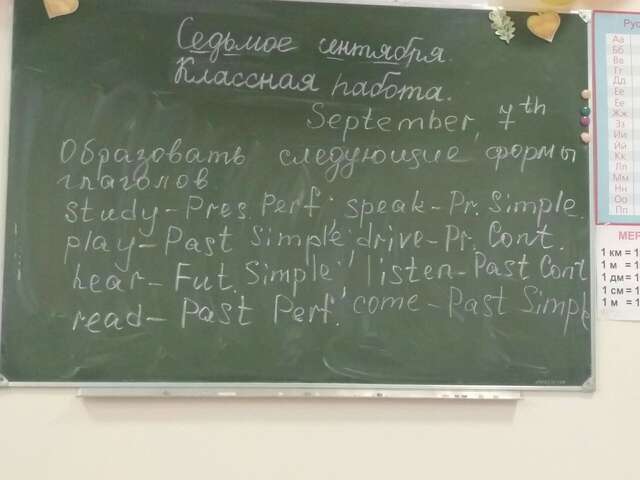 Седьмое сентября.
Классная работа.
September, 7th
Образовать следующие формы
глаголов
study - Pres. Perf; speak - Pr. Simple.
play - Past Simple; drive - Pr. Cont.
hear - Fut. Simple; listen - Past Cont
read - Past Perf; come - Past Simple
Рус
Аа
Бб
Вв
Гг
Дд
Ее
Ее
Жж
Зз
Ии
Йй
Кк
Лл
Мм
Нн
Оо
Пп
МЕР
1 км = 1
1 м = 1
1 дм = 1
1 см = 1
1 м = 1